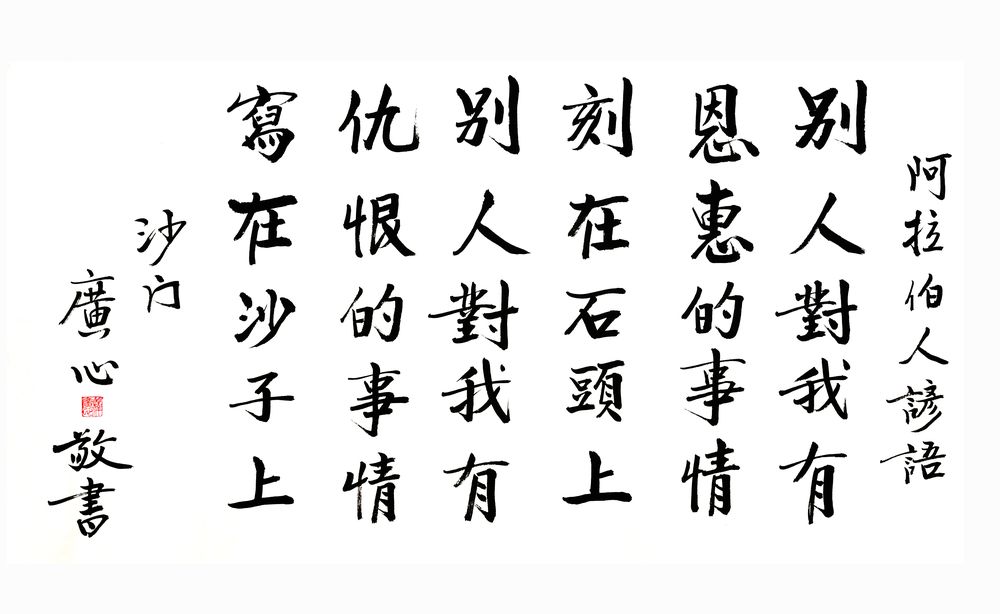 阿拉伯人諺語
别人對我有
恩惠的事情
刻在石頭上
别人對我有
仇恨的事情
寫在沙子上
沙门
廣心
敬書